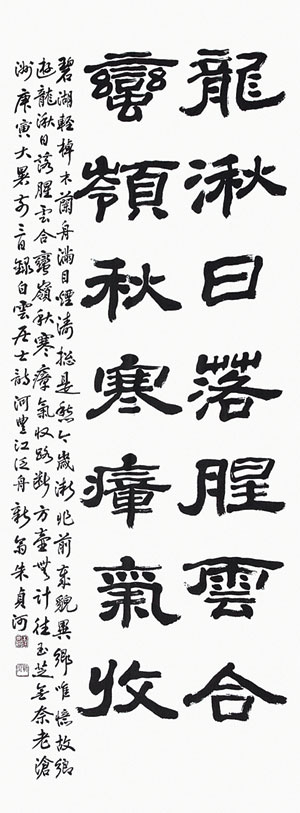 龍湫日落腥雲合
蠻嶺秋寒瘴氣收
碧湖輕棹木蘭舟滿目煙濤摠是愁今歲漸非前歲貌異鄉唯憶故鄉
遊龍湫日落腥雲合蠻嶺秋寒瘴氣收路斷方壺無計往玉芝無奈老滄
洲庚寅大暑前三日錄白雲居士詩河豐江泛舟新翁朱貞河